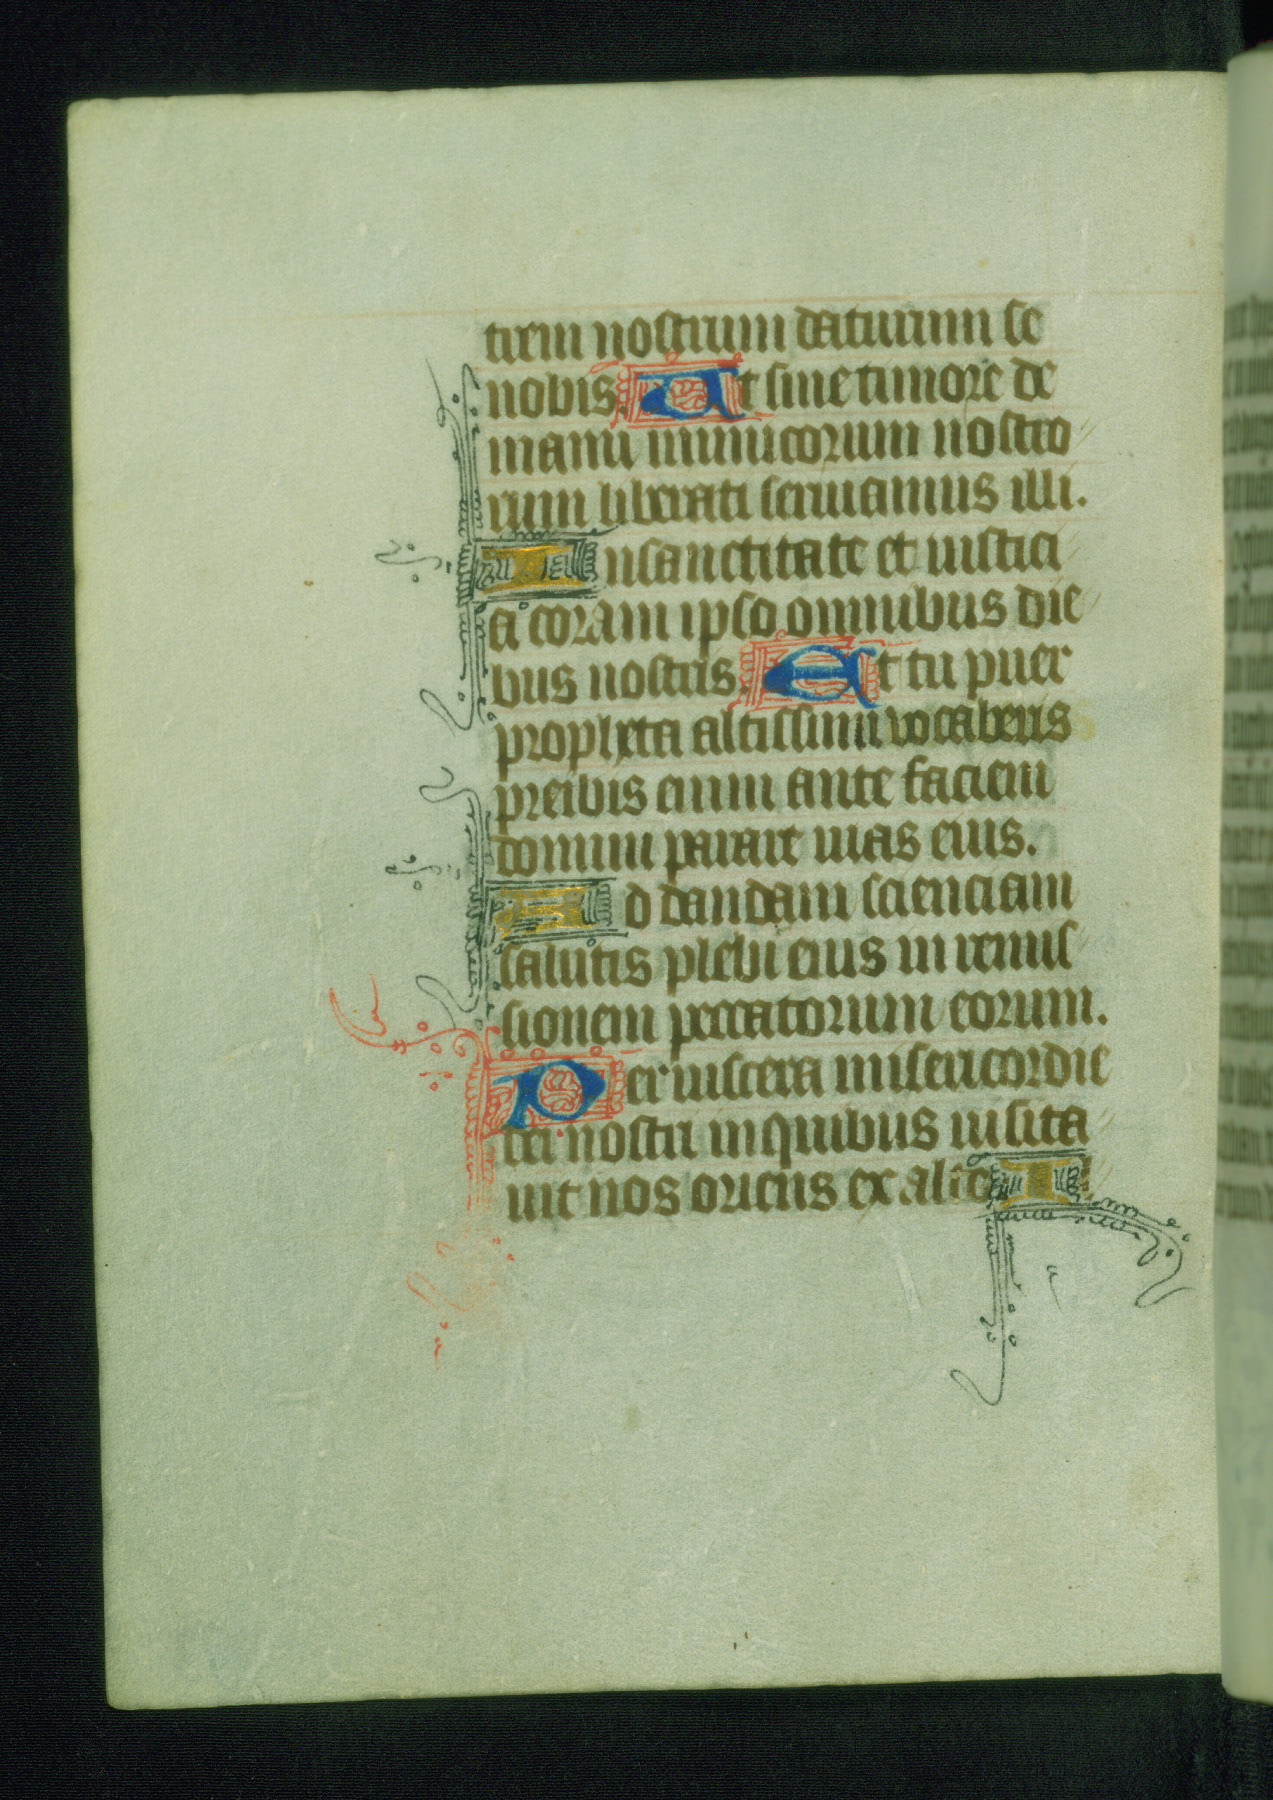 trem nostrum daturum se
nobis. Ut sine timore de
manu inimicorum nostro
rum liberati seruiamus illi.
In sanctitate et iustici
a coram ipso omnibus die
bus nostris. Et tu puer
propheta altissimi vocaberis
preibis enim ante faciem
domini parare uias eius.
Ad dandam scienciam
salutis plebi eius in remis
sionem peccatorum eorum.
Per uiscera misericordie
dei nostri in quibus uisita
uit nos oriens ex alto I